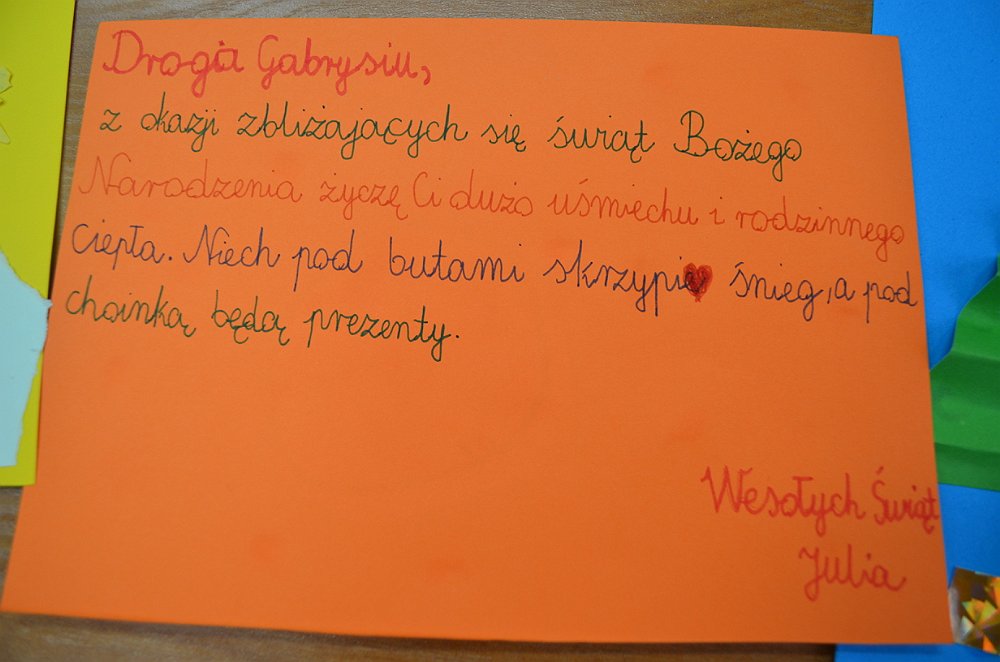 Droga Gabrysiu,
z okazji zbliżających się świąt Bożego
Narodzenia życzę Ci dużo uśmiechu i rodzinnego
ciepła. Niech pod butami skrzypi śnieg, a pod
choinką będą prezenty.
Wesołych Świąt
Julia